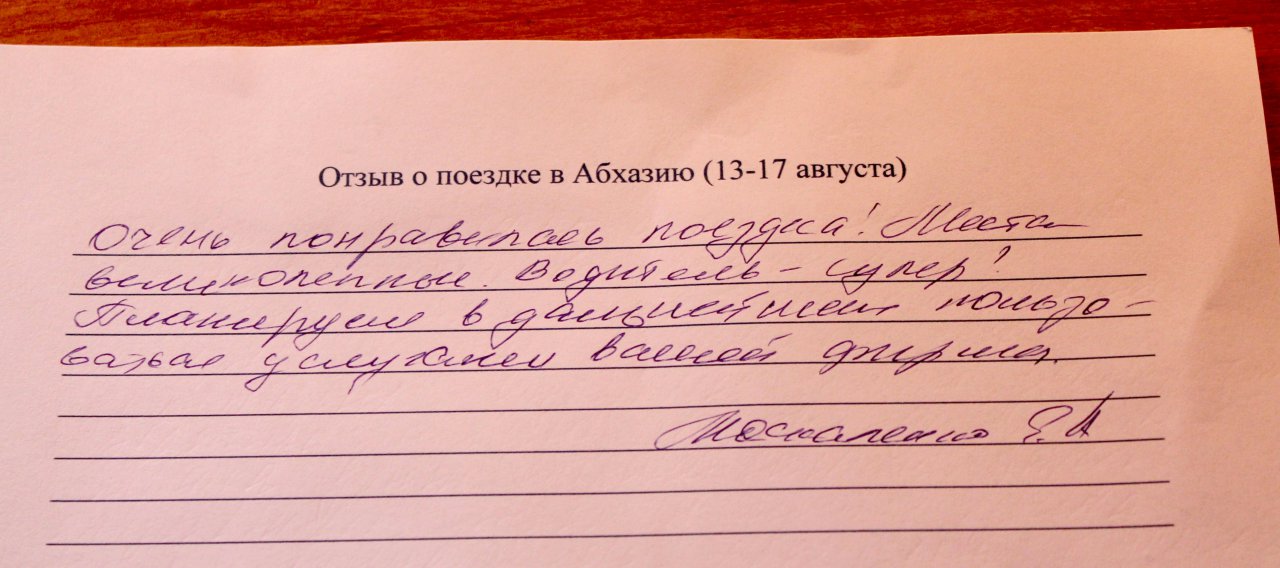 Отзыв о поездке в Абхазию (13-17 августа)
Очень понравилась поездка! Места
великолепные. Водитель - супер!
Планируем в дальнейшем пользо-
ваться услугами вашей фирмы.
Москаленко Е.А